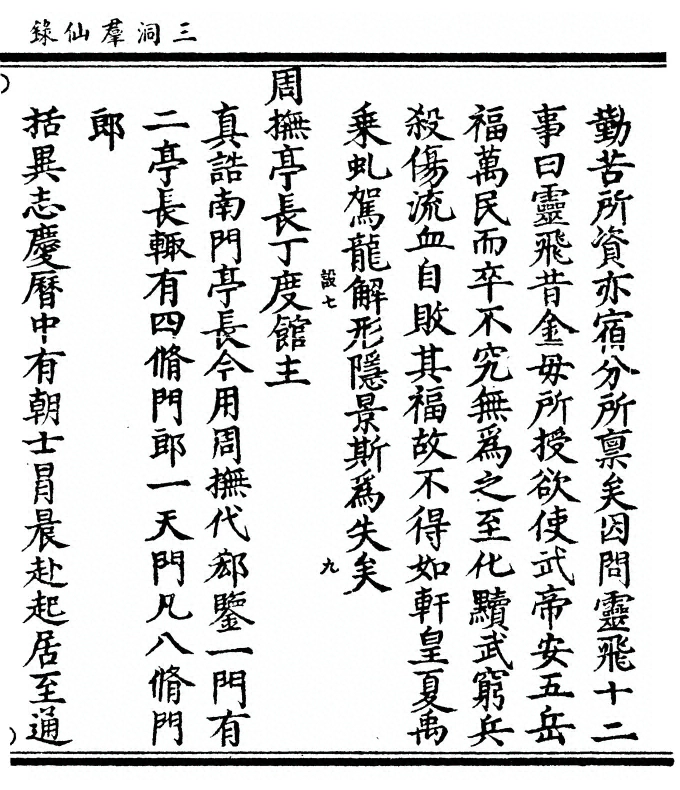 三洞羣仙錄
勤苦所資亦宿分所禀矣因問靈飛十二
事曰靈飛昔金母所授欲使武帝安五岳
福萬民而卒不究無爲之至化黷武窮兵
殺傷流血自敗其福故不得如軒皇夏禹
乘虬駕龍解形隱景斯爲失矣
設七
九
周撫亭長丁度館主
真誥南門亭長今用周撫代郄鑒一門有
二亭長輙有四脩門郎一天門凡八脩門
郎
括異志慶曆中有朝士冐晨赴起居至通